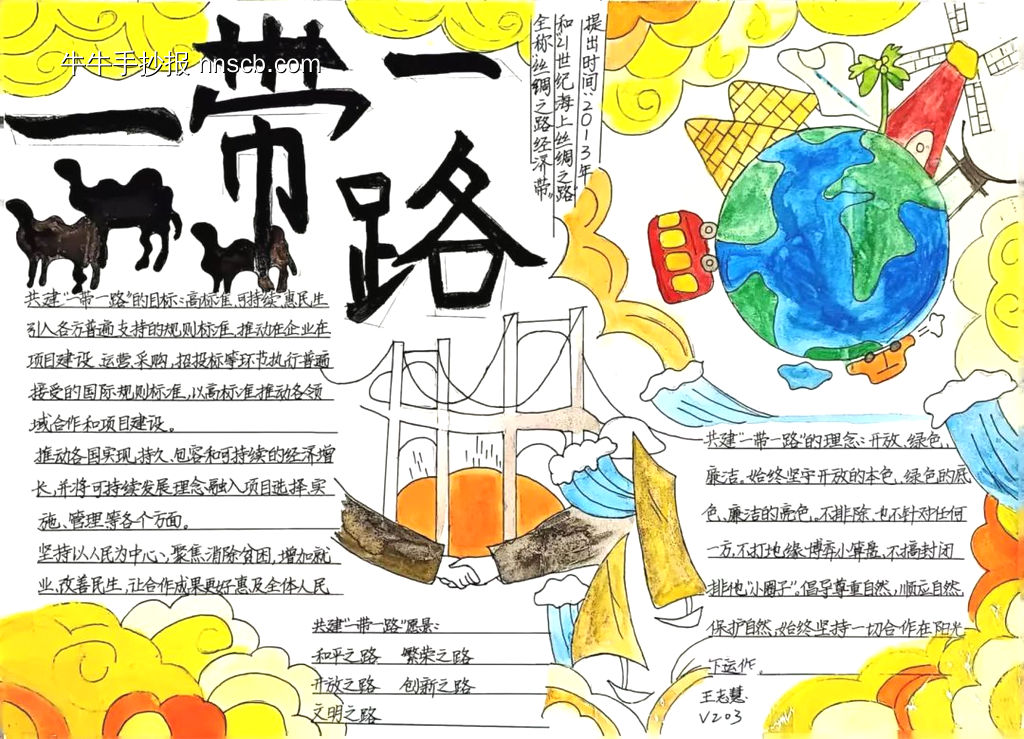 牛牛手抄报 nnscb.com
一带一路
提出时间：2013年
和21世纪海上丝绸之路”
全称“丝绸之路经济带”
共建“一带一路”的目标：高标准，可持续，惠民生
引入各方普遍支持的规则标准，推动在企业在
项目建设、运营、采购，招投标等环节执行普遍
接受的国际规则标准，以高标准推动各领
域合作和项目建设。
推动各国实现，持久、包容和可持续的经济增
长，并将可持续发展理念融入项目选择、实
施、管理等各个方面。
坚持以人民为中心、聚焦消除贫困，增加就
业、改善民生，让合作成果更好惠及全体人民
共建“一带一路”愿景：
和平之路 繁荣之路
开放之路 创新之路
文明之路
共建“一带一路”的理念：开放、绿色、
廉洁。始终坚守开放的本色、绿色的底
色、廉洁的亮色。不排除、也不针对任何
一方，不打地缘博弈小算盘，不搞封闭
排他“小圈子”。倡导尊重自然，顺应自然，
保护自然，始终坚持一切合作在阳光
下运作。
王志慧
V203